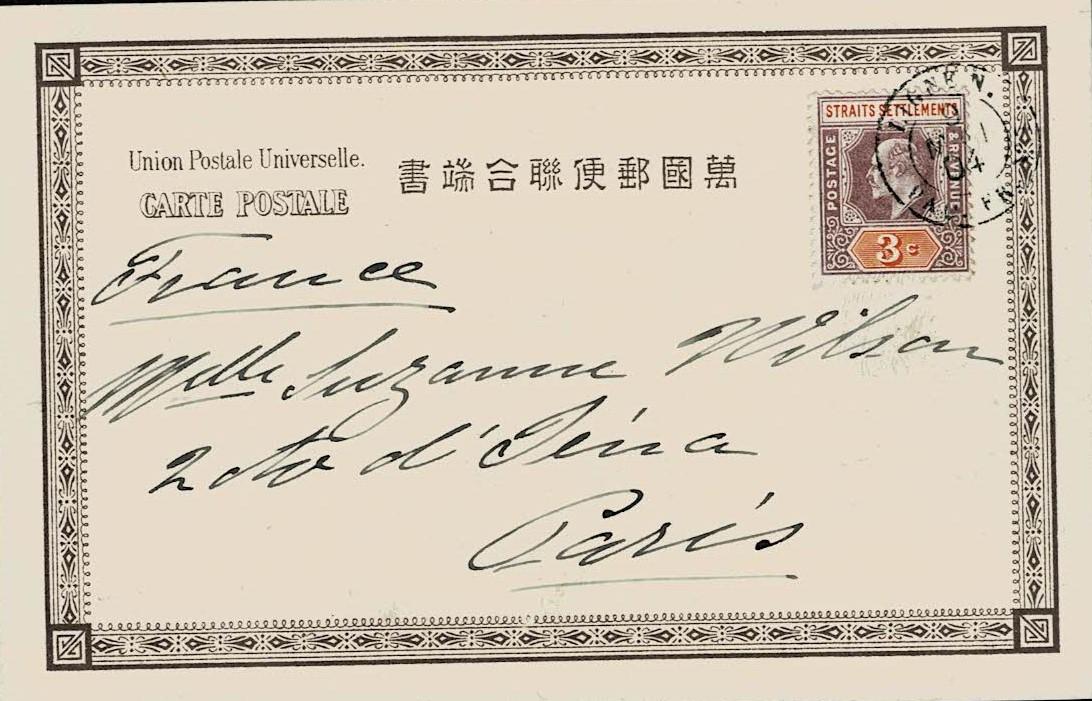 Union Postale Universelle.
CARTE POSTALE
萬國郵便聯合端書
STRAITS SETTLEMENTS
POSTAGE
& REVENUE
3c
LIGNE N.
04
France
Melle Suzanne Wilson
2 d'Iéna
Paris